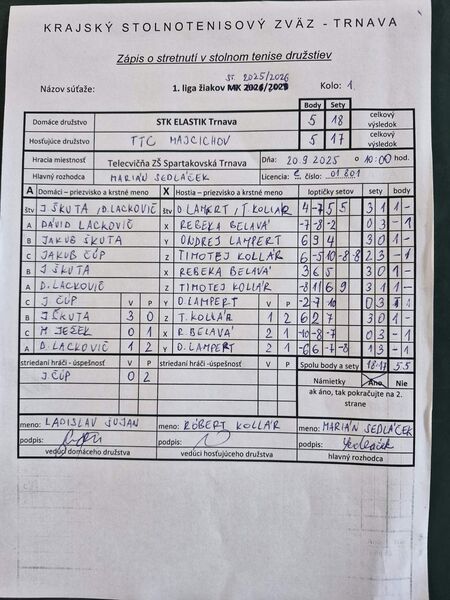 KRAJSKÝ STOLNOTENISOVÝ ZVÄZ - TRNAVA
Zápis o stretnutí v stolnom tenise družstiev
ST. 2025/2026
Názov súťaže: 1. liga žiakov Kolo: 1
Body Sety
Domáce družstvo STK ELASTIK Trnava 5 18 celkový výsledok
Hosťujúce družstvo TTC MAJCICHOV 5 17 celkový výsledok
Hracia miestnosť Telecvičňa ZŠ Spartakovská Trnava Dňa: 20.9.2025 o 10:00 hod.
Hlavný rozhodca MARIÁN SEDLÁČEK Licencia: C číslo: 01801
A Domáci - priezvisko a krstné meno X Hostia - priezvisko a krstné meno loptičky setov sety body
štv J ŠKUTA, D.LACKOVIČ štv D LAMPERT, T.KOLLÁR 4 -7 5 5 3 1 1 -
A DÁVID LACKOVIČ X REBEKA BELAVÁ -7 -8 -2 0 3 - 1
B JAKUB ŠKUTA Y ONDREJ LAMPERT 6 9 4 3 0 1 -
C JAKUB ČÚP Z TIMOTEJ KOLLÁR 6 -5 10 -8 -8 2 3 - 1
B J ŠKUTA X REBEKA BELAVÁ 3 6 5 3 0 1 -
A D.LACKOVIČ Z TIMOTEJ KOLLÁR -8 11 6 9 3 1 1 -
C J ČÚP V P Y D.LAMPERT V P -2 -7 10 0 3 1
B J ŠKUTA 3 0 Z T.KOLLÁR 1 2 6 2 7 3 0 1 -
C M JEŽEK 0 1 X R.BELAVÁ 2 1 -10 -8 -7 0 3 - 1
A D.LACKOVIČ 1 2 Y D.LAMPERT 2 1 -6 6 -7 -8 1 3 - 1
striedaní hráči - úspešnosť V P striedaní hráči - úspešnosť V P Spolu body a sety 18:17 5:5
J ČÚP 0 2 Námietky Áno Nie
ak áno, tak pokračujte na 2. strane
meno: LADISLAV SUJAN meno: RÓBERT KOLLÁR meno: MARIÁN SEDLÁČEK
podpis: podpis: podpis: Sedláček
vedúci domáceho družstva vedúci hosťujúceho družstva hlavný rozhodca